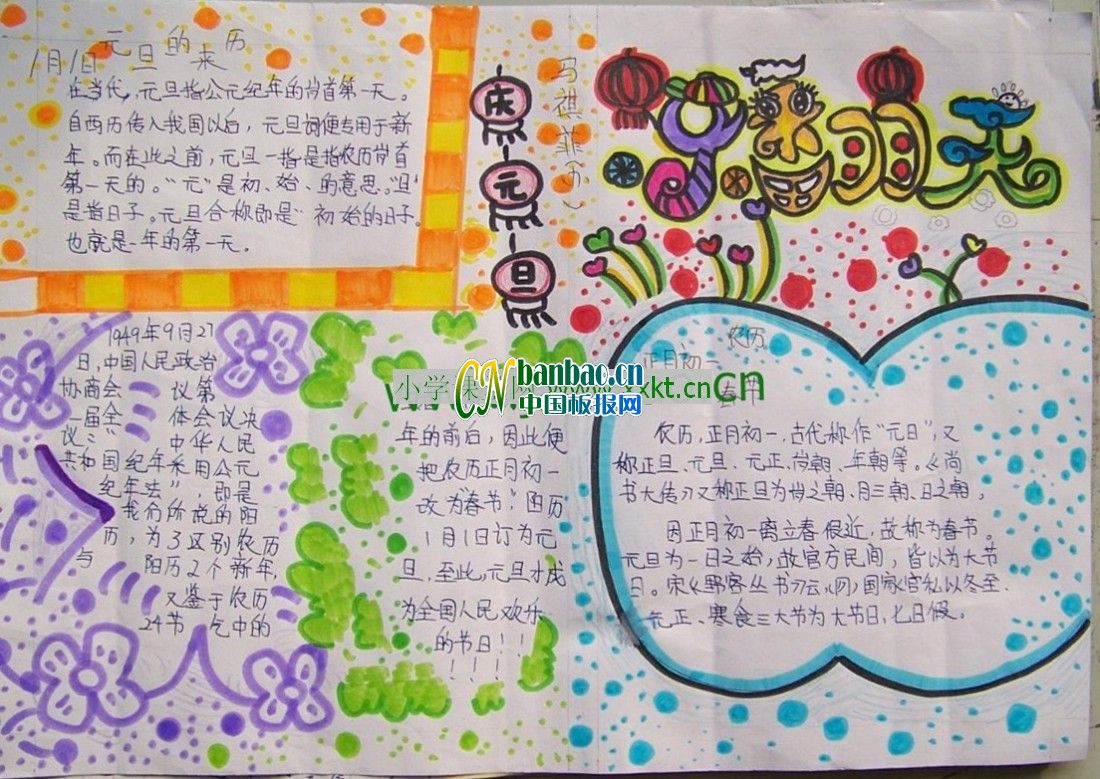 元旦的来历
1月1日
在当代，元旦指公元纪年的岁首第一天。
自西历传入我国以后，元旦词便专用于新
年。而在此之前，元旦一指是指农历岁首
第一天的。“元”是初、始、的意思。“旦”
是指日子。元旦合称即是“初始的日子
也就是一年的第一天。
庆
元
旦
马祺菲
明天
1949年9月27
日，中国人民政治
协商会 议第
一届全 体会议决
议：“ 中华人民
共和国纪年采用公元
纪年法”，即是
我们所说的阳
历 为了区别农历
与 阳历2个新年，
又鉴于农历
24节 气中的
年的前后，因此便
把农历正月初一
改为“春节”，阳历
1月1日订为元
旦，至此，元旦才成
为全国人民欢乐
的节日！！
！！！！
农历
正月初一
春节
农历，正月初一，古代称作“元日”，又
称正旦、元旦、元正、岁朝、年朝等。《尚
书大传》又称正旦为岁之朝、月三朝、日之朝，
因正月初一离立春很近，故称为春节。
元旦为一日之始，故官方民间，皆以为大节
日。宋《野客丛书》云：“国家官私以冬至、
元正、寒食三大节为大节日，七日假。
小学课
xxkt.cn
CN banbao.cn
中国板报网
www
cn